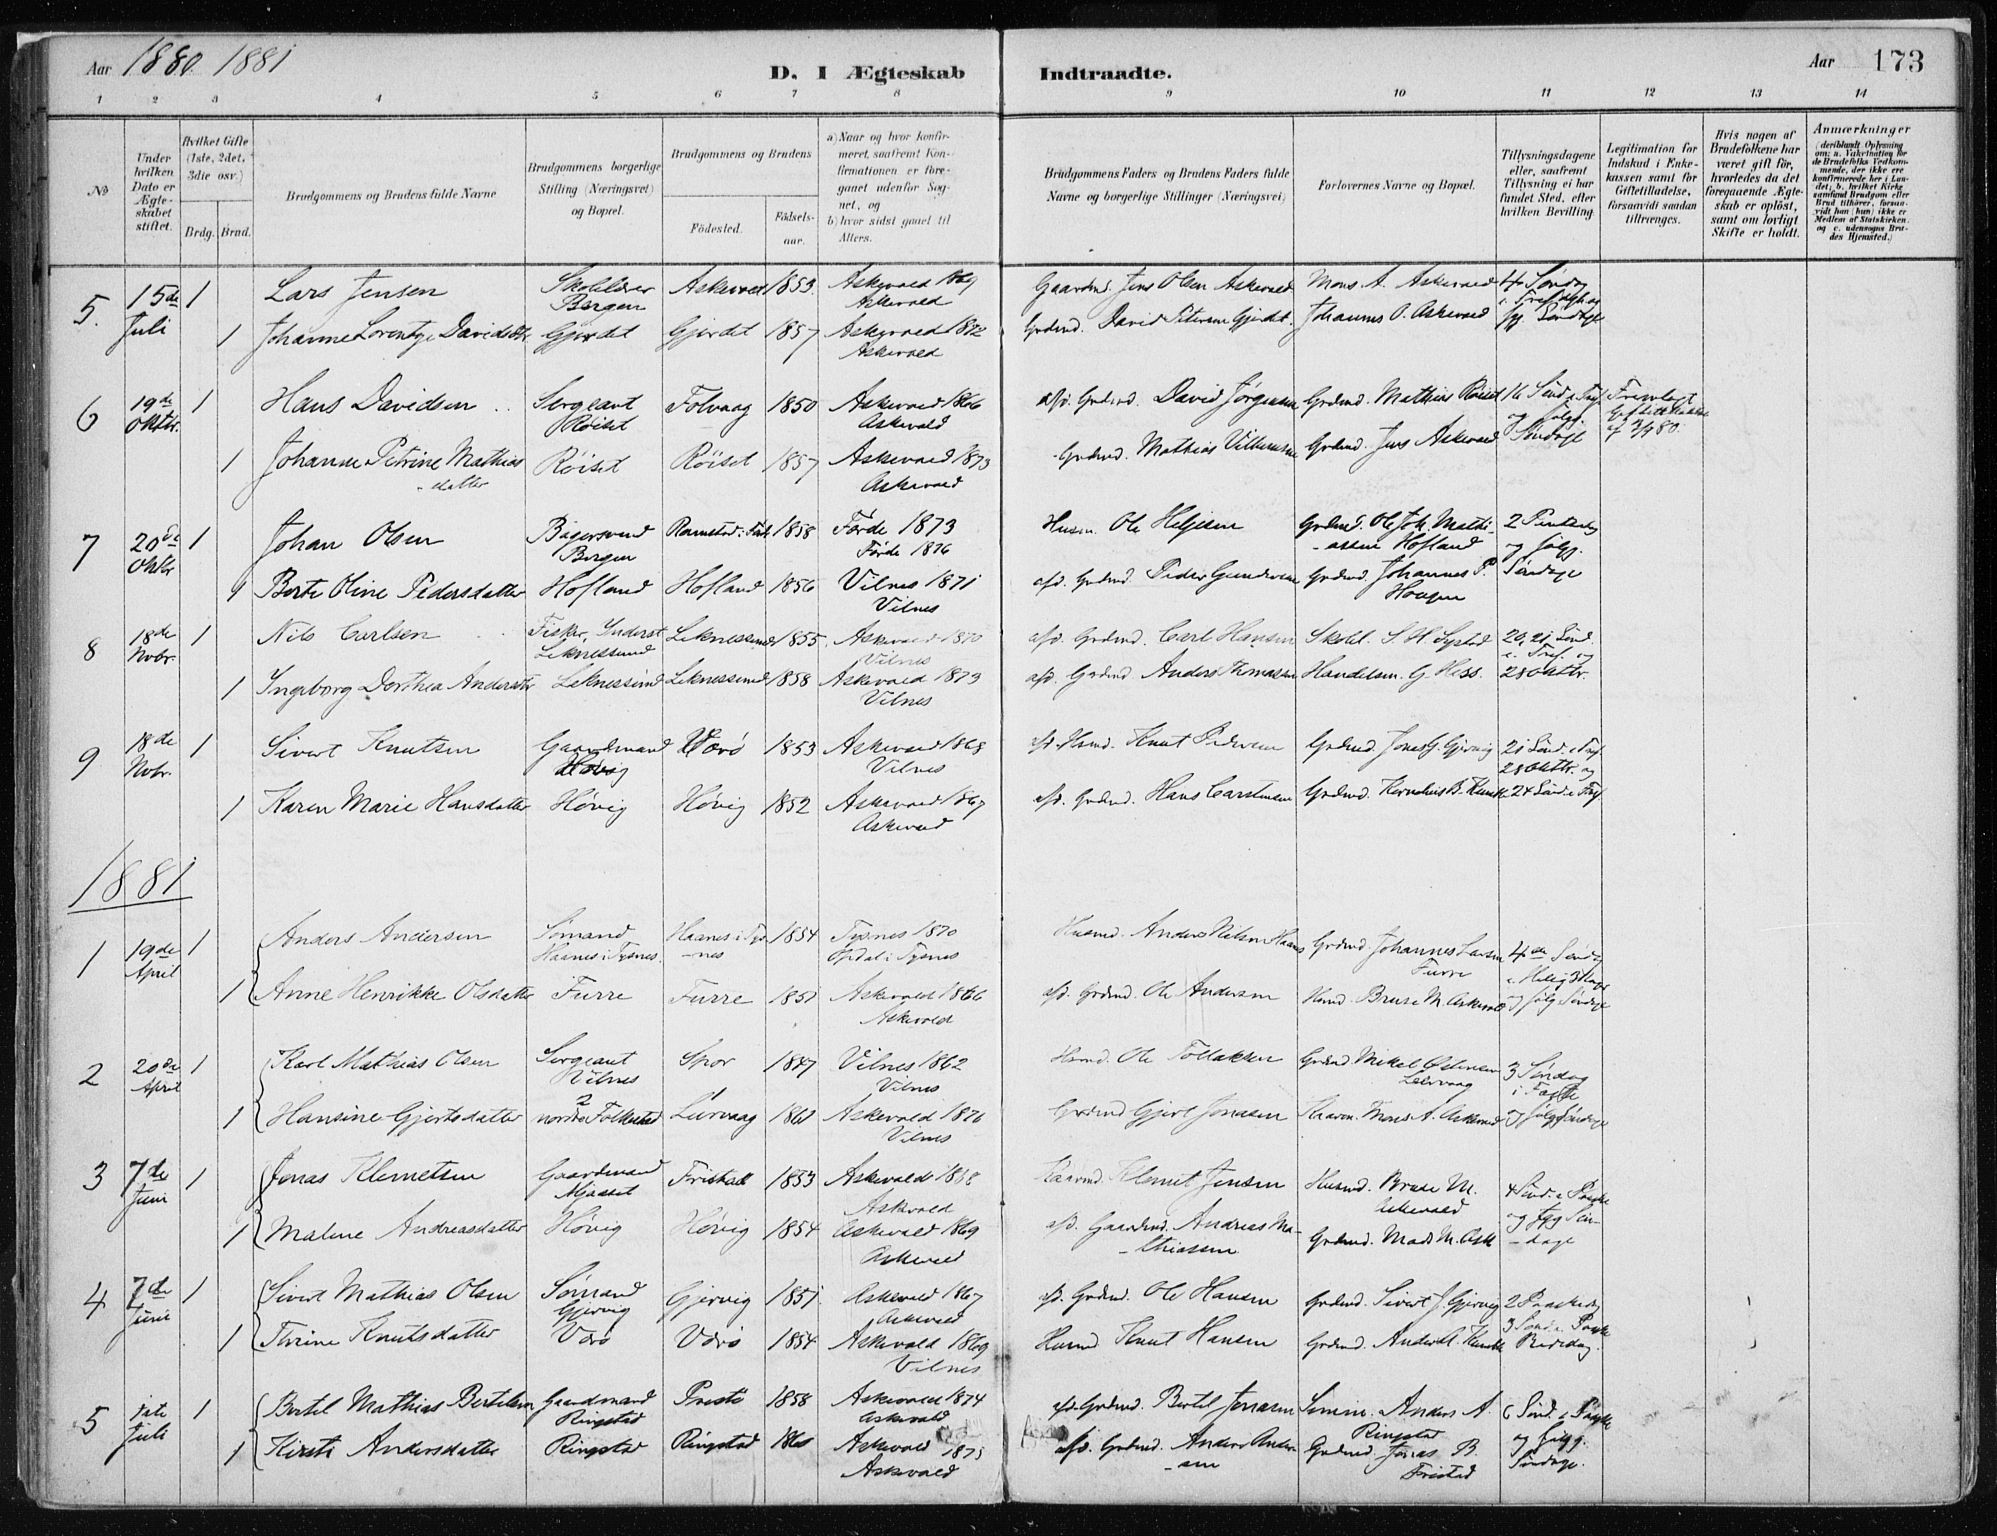 Aar 1880. 1881
D. I Ægteskab Indtraadte.
Aar 173
1 2 3 4 5 6 7 8 9 10 11 12 13 14
No
Under hvilken Dato er Ægteskabet stiftet.
Hvilket Gifte (1ste, 2det, 3die osv.)
Brdg. Brud.
Brudgommens og Brudens fulde Navne
Brudgommens borgerlige Stilling (Næringsvei) og Bopæl.
Brudgommens og Brudens
Födested.
Födselsaar.
a) Naar og hvor konfirmeret, saafremt Konfirmationen er foregaaet udenfor Sognet, og
b) hvor sidst gaaet til Alters.
Brudgommens Faders og Brudens Faders fulde Navne og borgerlige Stillinger (Næringsvei)
Forlovernes Navne og Bopæl.
Tillysningsdagene eller, saafremt Tillysning ei har fundet Sted, efter hvilken Bevilling.
Legitimation for Indskud i Enkekassen samt for Giftetilladelse, forsaavidt saadan tiltrænges.
Hvis nogen af Brudefolkene har været gift før, hvorledes da det foregaaende Ægteskab er opløst, samt om lovligt Skifte er holdt.
Anmærkninger (deriblandt Oplysning om: a. Vakcination for de Brudefolks Vedkommende, der ikke ere konfirmerede her i Landet; b. hvilket Kirkesamfund Brudgom eller Brud tilhører, forsaavidt han (hun) ikke er Medlem af Statskirken, og c. udensogns Brudes Hjemsted.)
5. 15de Juli 1 Lars Jensen Skolelærer Bergen Askevold 1853 Askevold 1869 Askevold Gaardmd. Jens Olsen Askevold Mons A. Askevold 4 Søndag
1 Johanne Lorentze Davidsdtr. Gjerdet Gjerdet 1857 Askevold 1872 Askevold Grdmd. David Petersen Gjerdet. Johannes O. Askevold
6 19de Oktbr. 1 Hans Davidsen Sergeant Røiset Folvaag 1850 Askevold 1866 Askevold afd. Grdmd. David Jørgensen Grdmd. Mathias Røiset 16 Sønd. e. Tref.
1 Johanne Petrine Mathiasdatter Røiset Røiset 1857 Askevold 1873 Askevold Grdmd. Mathias Villumsen Grdmd. Jens Askevold Søndage
7 20de Oktbr 1 Johan Olsen Bagersvend Bergen 1858 Førde 1873 Førde 1876 Husm. Ole Helgesen Grdmd. Ole Joh. Mathiassen Hofland 2
1 Berte Oline Pedersdatter Hofland Hofland 1856 Vilnes 1871 Vilnes afd. Grdmd. Peder Gundersen Grdmd. Johannes P. Haugen Søndage
8 18de Novbr. 1 Nils Carlsen Fisker, Inderst Leknessund Leknessund 1855. Askevold 1870 Vilnes afd. Grdmd. Carl Hansen Skolel. S. H. Systad 20, 21 Sønd. e. Tref. og
1 Ingeborg Dorthea Andersdtr Leknessund Leknessund 1858 Askevold 1873 Vilnes afd. Grdmd. Anders Thomassen Handelsm. G. Hess. 28 Oktbr.
9 18de Novbr. 1 Sivert Knutsen Gaardmand Høvig Værø 1853 Askevold 1868 Vilnes afd. Husmd. Knut Pedersen Grdmd. Jonas J. Gjervig 21 Sønd. e. Tref. 28 Oktbr. og
1 Karen Marie Hansdatter Høvig Høvig 1852 Askevold 1867 Askevold afd. Grdmd. Hans Carstensen Grdmd. Kornelius B. 24 Sønd. e. Tref.
1881
1 19de April 1 Anders Andersen Sømand Haanes i Tysnes. Haanes i Tysnes 1854 Tysnes 1870 Opdal i Tysnes Husmd. Anders Nilsen Haanes Grdmd. Johannes Larsen Furre 4de Sønd
1 Anne Henrikke Olsdatter Furre Furre 1851 Askevold 1866 Askevold afd. Grdmd. Ole Andersen Husmd. Brase M. Askevold og følg Søndage
2 20de April 1 Karl Mathias Olsen Sergeant Vilnes Spor 1847 Vilnes 1862 Vilnes Husmd. Ole Tollaksen Grdmd Mikel Østensen Leervaag 3 Søndag i Faste
1 Hansine Gjertsdatter nordre Folkestad Lervaag Askevold 1876 Vilnes Grdmd Gjert Jonassen Mons A. Askevold og følg Søndage
3 7de Juni 1 Jonas Klemetsen Gaardmand Fristad 1853 Askevold 1868 Askevold Gaardmd. Klemet Jensen Husmd. Brase M. Askevold 4 Sønd. e. Paaske
1 Malene Andreasdatter Høvig Høvig 1854 Askevold 1869 Askevold afd. Gaardmd. Andreas Mathiassen Grdmd. Mads M. Ask og flg Søndage
4 7de Juni 1 Sivert Mathias Olsen Sømand Gjervig Gjervig 1851 Askevold 1867 Askevold afd. Grdmd. Ole Hansen Grdmd. Sivert J. Gjervig 2 Paaskedag
1 Thrine Knutsdatter Værø Værø 1854 Askevold 1869 Vilnes Husmd. Knut Hansen Grdmd. 3 Sønd. e. Paaske Bededag.
5 Juli 1 Bertel Mathias Bertelsen Gaardmand Ringstad 1858 Askevold 1874 Askevold afd. Grdmd. Bertil Jonassen Anders A. Ringstad 6 Sønd. e. Paaske
1 Kirsti Andersdatter Ringstad Ringstad 1860 Askevold 1875 Askevold afd. Grdmd. Anders Andersen Grdmd. Jonas B. Fristad og følgg. Søndage.